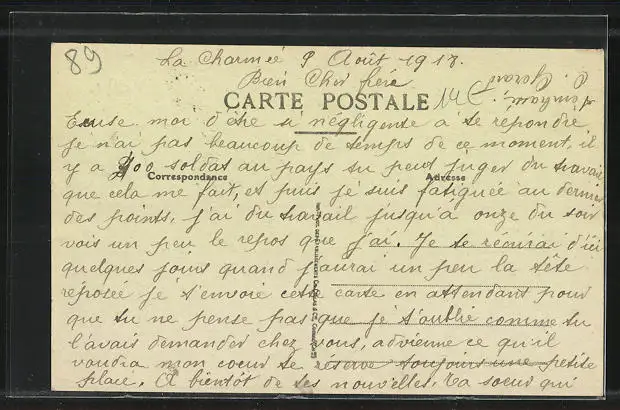 89
La Charmée 8 Août 1918.
Bien Cher frère
CARTE POSTALE
Excuse moi d'être si négligente à te repondre,
je n'ai pas beaucoup de temps de ce moment, il
y a 400 soldats au pays tu peux juger du travail
Correspondance Adresse
que cela me fait, et puis je suis fatiguée au dernier
des points, j'ai du travail jusqu'à onze du soir
vois un peu le repos que j'ai. Je te récrirai d'ici
quelques jours quand j'aurai un peu la tête
reposée je t'envoie cette carte en attendant pour
que tu ne pense pas que je t'oublie comme tu
l'avais demander chez vous, advienne ce qu'il
voudra mon coeur te réserve toujours une petite
place. A bientôt de tes nouvelles. Ta soeur qui
t'embrasse.